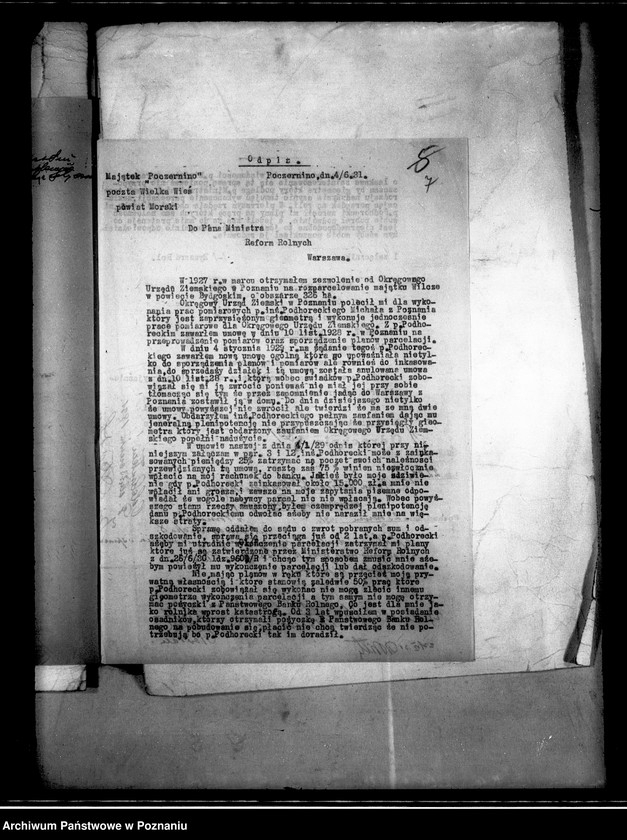 Odpis.
5
7
Majątek "Poczernino" Poczernino,dn.4/6.31.
poczta Wielka Wieś
powiat Morski
Do Pana Ministra
Reform Rolnych
Warszawa.
W 1927 r.w marcu otrzymałem zezwolenie od Okręgowego
Urzędu Ziemskiego w Poznaniu na rozparcelowanie majątku Wilcze
w powiecie Bydgoskim, o obszarze 326 ha.
Okręgowy Urząd Ziemski w Poznaniu polecił mi dla wyko-
nania prac pomiarowych p.inż.Podhoreckiego Michała z Poznania
który jest zaprzysiężonym gieometrą i wykonuje jednocześnie
prace pomiarowe dla Okręgowego Urzędu Ziemskiego. Z p.Podho-
reckim zawarłem umowę w dniu 10 list.1928 r. w Poznaniu na
przeprowadzenie pomiarów oraz sporządzenie planów parcelacji.
W dniu 4 stycznia 1929 r.na żądanie tegoż p.Podhorec-
kiego zawarłem nową umowę ogólną która go upoważniała nietyl-
ko do sporządzenia planów i pomiarów ale również do inkasowa-
nia,do sprzedaży działek i tą umową została anulowana umowa
z dn.10 list.28 r.,i którą wobec świadków p.Podhorecki zobo-
wiązał się mi ją zwrócić ponieważ nie miał jej przy sobie
tłomacząc się tym że przez zapomnienie jadąc do Warszawy z
Poznania zostawił ją w domu. Do dnia dzisiejszego nietylko
że umowy powyższej nie zwrócił ale twierdzi że ma ze mną dwie
umowy. Obdarzyłem inż.Podhoreckiego pełnym zaufaniem dając mu
jeneralną plenipotencję nie przypuszczając że przysięgły gieo-
metra który jest obdarzony zaufaniem Okręgowego Urzędu Ziem-
skiego popełni nadużycie.
W umowie naszej z dnia 4/1/29 odpis której przy ni-
niejszym załączam w par. 3 i 12 inż.Podhorecki może z zainka-
sowanych pieniędzy 25% zatrzymać na poczet swoich należności
przewidzianych tą umową, resztę zaś 75 % winien niezwłocznie
wpłacić na mój rachunek do banku. Jakież było moje zdziwie-
nie gdy p.Podhorecki zainkasował około 15.000 zł.a mnie nie
wpłacił ani grosza, zawsze na moje zapytania pisemne odpo-
wiadał że wogóle nabywcy parcel nic nie wpłacają. Wobec powyż-
szego stanu rzeczy zmuszony byłem czemprędzej plenipotencję
daną p.Podhoreckiemu odwołać ażeby nie narazić mnie na wię-
ksze straty.
Sprawę oddałem do sądu o zwrot pobranych sum i od-
szkodowanie, sprawa się przeciąga już od 2 lat,a p.Podhorecki
ażeby mi utrudnić wykończenie parcelacji zatrzymał mi plany
które już są zatwierdzone przez Ministerstwo Reform Rolnych
bym powieżył mu wykończenie parcelacji lub dał odszkodowanie.
Nie mając planów w ręku które są przecież moją pry-
watną własnością i które stanowią zaledwie 50% prac które
p.Podhorecki zobowiązał się wykonać nie mogę zlecić innemu
gieometrze wykończenia parcelacji a tym samym nie mogę otrzy-
mać pożyczki z Państwowego Banku Rolnego, co jest dla mnie ja-
ko rolnika wprost katastrofą. Od 2 lat wpuściłem w posiadanie
osadników,którzy otrzymali pożyczkę z Państwowego Banku Rol-
nego na pobudowanie się,płacić nie chcą twierdząc że nie po-
trzebują bo p.Podhorecki tak im doradził.
Archiwum Państwowe w Poznaniu